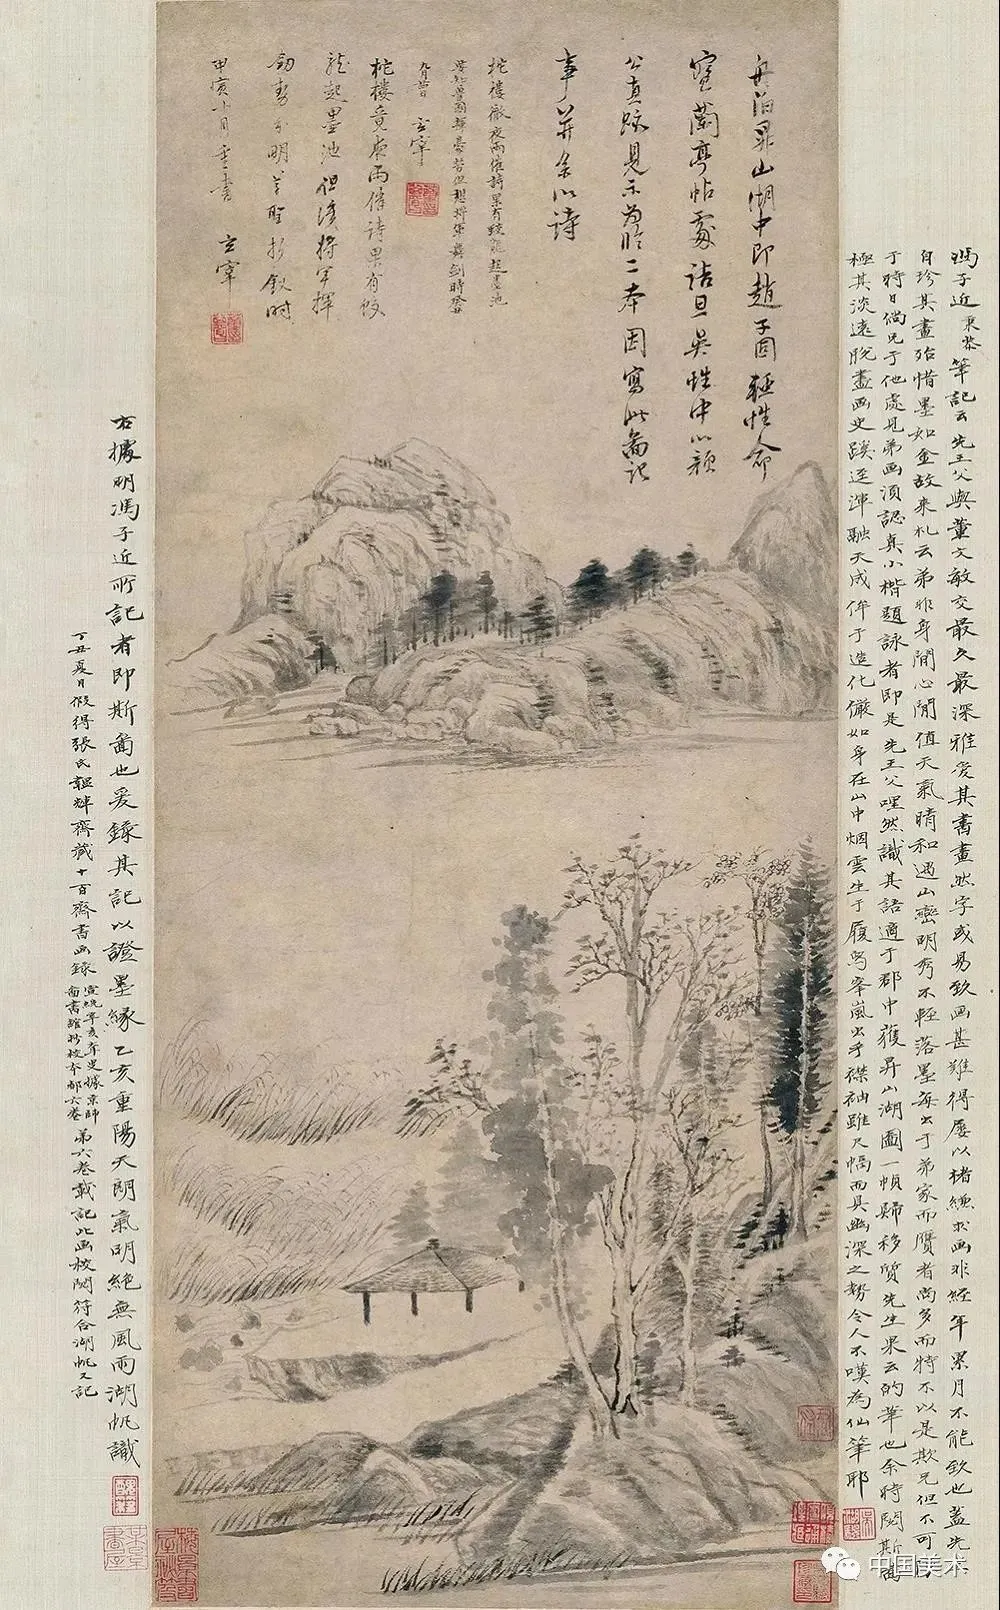 舟泊昇山湖中即趙子固輕性命
寶蘭亭帖處詰旦吳性中以顏
公真跡見示為臨二本因寫此圖記
事並余以詩
柁樓徹夜雨催詩果有蛟龍起墨池
玄宰
柁樓竟夜雨催詩果有蛟
龍起墨池但演將軍揮
劍勢分明草聖折釵時
十月重書 玄宰
馮子近秉恭筆記云先王父與董文敏交最久最深雅愛其書畫然字或易致畫甚難得屢以楮縑求畫非經年累月不能致也蓋先
自珍其畫殆惜墨如金故來札云弟非身閒心閒值天氣晴和遇山巒明秀不輕落墨每出于弟家而贗者尚多而特不以是欺兄但不可
于時日倘兄于他處見弟画須認真小楷題詠者即是先王父嘿然識其語適于郡中獲昇山湖圖一幀歸移質先生果云的筆也余時閱斯圖
極其淡遠脫盡画史蹊逕渾融天成侔于造化儼如身在山中烟雲生于履舄峯嵐出乎襟袖雖尺幅而具幽深之勢令人不嘆為仙筆耶
右據明馮子近所記者即斯圖也爰錄其記以證墨緣乙亥重陽天朗氣明絕無風雨湖帆識
丁丑夏日假得張氏韞輝齋藏十百齋書画錄
宣統辛亥
據京師
圖書館
六卷
第六卷載記此画校閱符合湖帆又記
中国美术